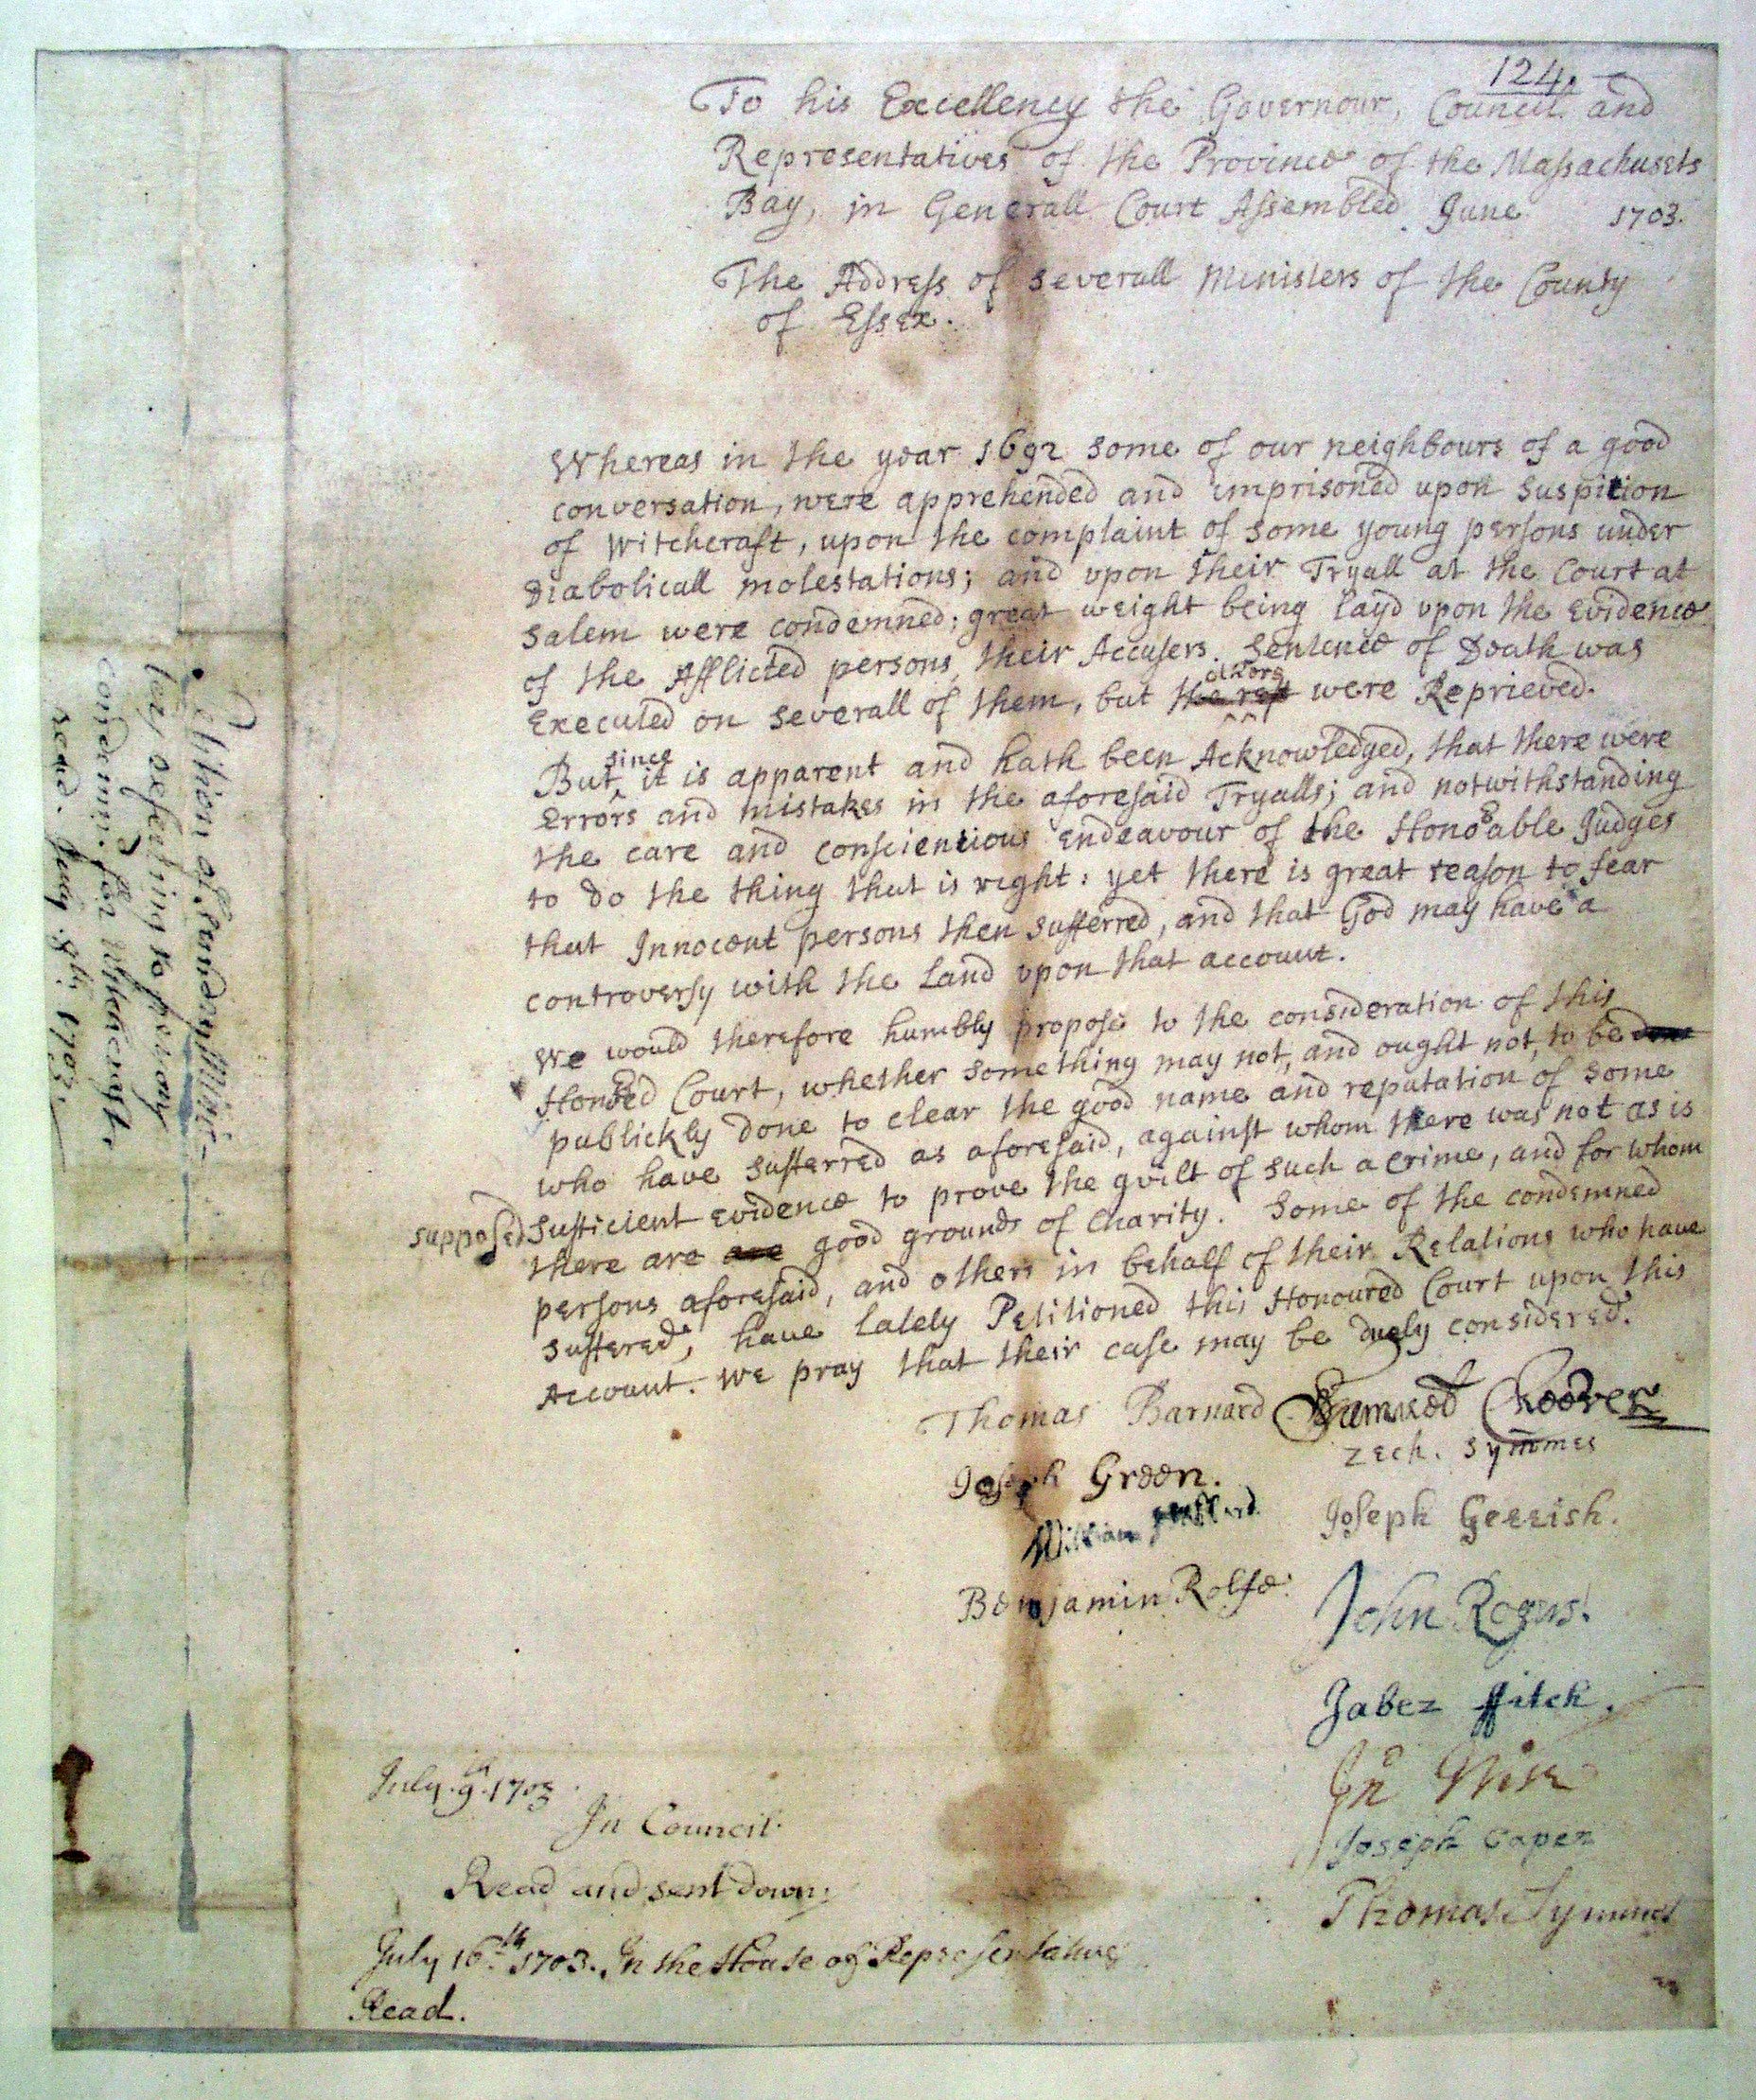 124.
To his Excellency the Governour, Council and
Representatives of the Province of the Massachusets
Bay, in Generall Court Assembled June 1703.
The Address of severall Ministers of the County
of Essex.
Whereas in the year 1692 some of our neighbours of a good
conversation, were apprehended and imprisoned upon suspition
of witchcraft, upon the complaint of some young persons under
Diabolicall molestations; and upon their Tryall at the Court at
Salem were condemned; great weight being layd upon the Evidence
of the Afflicted persons, their Accusers. Sentence of Death was
others
Executed on severall of them, but the rest were Reprieved.
since
But, it is apparent and hath been Acknowledged, that there were
Errors and mistakes in the aforesaid Tryalls; and notwithstanding
the care and conscientious Endeavour of the Honoable Judges
to do the thing that is right: yet there is great reason to fear
that Innocent persons then sufferred, and that God may have a
controversy with the Land upon that account.
We would therefore humbly propose to the consideration of this
Honoed Court, whether something may not, and ought not, to be
publickly done to clear the good name and reputation of some
who have sufferred as aforesaid, against whom there was not as is
supposed sufficient evidence to prove the guilt of such a crime, and for whom
there are are good grounds of charity. Some of the condemned
persons aforesaid, and others in behalf of their Relations who have
suffered, have lately Petitioned this Honoured Court upon this
Account. We pray that their case may be duely considered.
Thomas Barnard Samuel Cheever
Zech. Symmes
Joseph Green.
Joseph Gerrish.
William Hubbard
Benjamin Rolfe.
John Rogers.
Jabez ffitch.
Jno Wise
Joseph Capen
Thomas Symmes
July. 9. 1703
In Council.
Read and sent down;
July 16th 1703. In the House of Representatives
Read.
Petition of Sundry Minis-
ters referring to persons
condemnd for Witchcraft.
read. July 9th 1703.